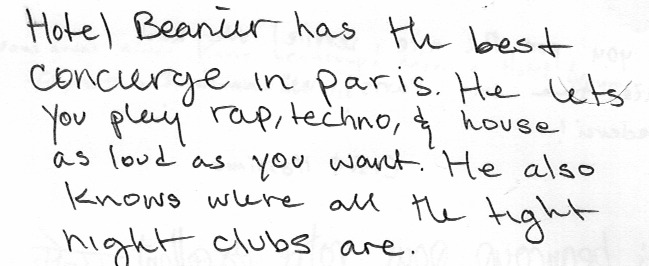 Hotel Beanier has the best
concierge in paris. He lets
you play rap, techno, & house
as loud as you want. He also
knows where all the tight
night clubs are.